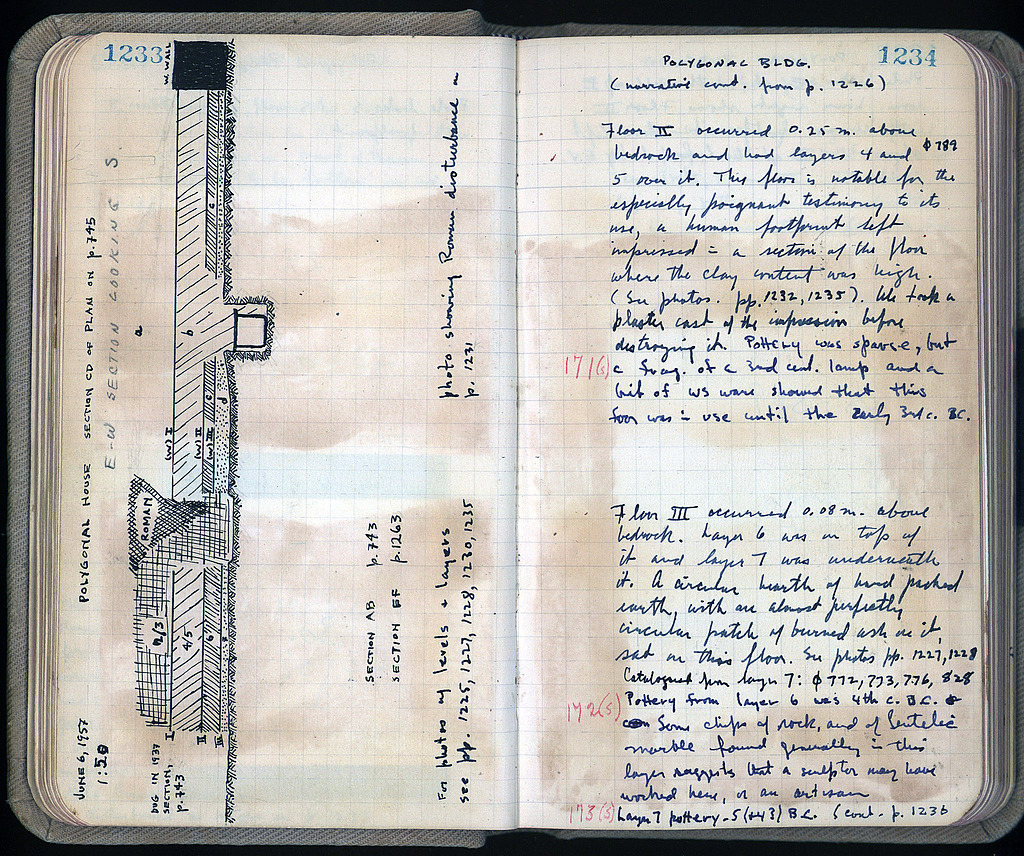 1233
JUNE 6, 1957
1:50
POLYGONAL HOUSE SECTION CD OF PLAN ON p.745
E-W SECTION LOOKING S
W. WALL
DUG IN 1937
SECTION,
p.743
I
II
III
2/3
4/5
6
ROMAN
(W) I
(W) II
(W) III
a
b
c
d
c
SECTION AB p.743
SECTION EF p.1263
For photos of levels + layers
see pp. 1225, 1227, 1228, 1230, 1235
photo showing Roman disturbance a
p. 1231
1234
POLYGONAL BLDG.
(narrative cont. from p. 1226)
Floor II occurred 0.25 m. above
bedrock and had layers 4 and
ϕ 789
5 over it. This floor is notable for the
especially poignant testimony to its
use, a human footprint left
impressed in a section of the floor
where the clay content was high.
(See photos. pp. 1232, 1235). We took a
plaster cast of the impression before
destroying it. Pottery was sparse, but
171(s) a frag. of a 3rd cent. lamp and a
bit of WS ware showed that this
floor was in use until the early 3rd c. BC.
Floor III occurred 0.08 m. above
bedrock. Layer 6 was on top of
it and layer 7 was underneath
it. A circular hearth of hard packed
earth, with an almost perfectly
circular patch of burned ash on it,
sat on this floor. See photos pp. 1227, 1228
Catalogued from layer 7: ϕ 772, 773, 776, 828
172(s) Pottery from layer 6 was 4th c. B.C.
Some chips of rock, and of Pentelic
marble found generally in this
layer suggests that a sculptor may have
worked here, or an artisan
173(s) Layer 7 pottery - 5 (+43) B.C. (cont. p. 1236